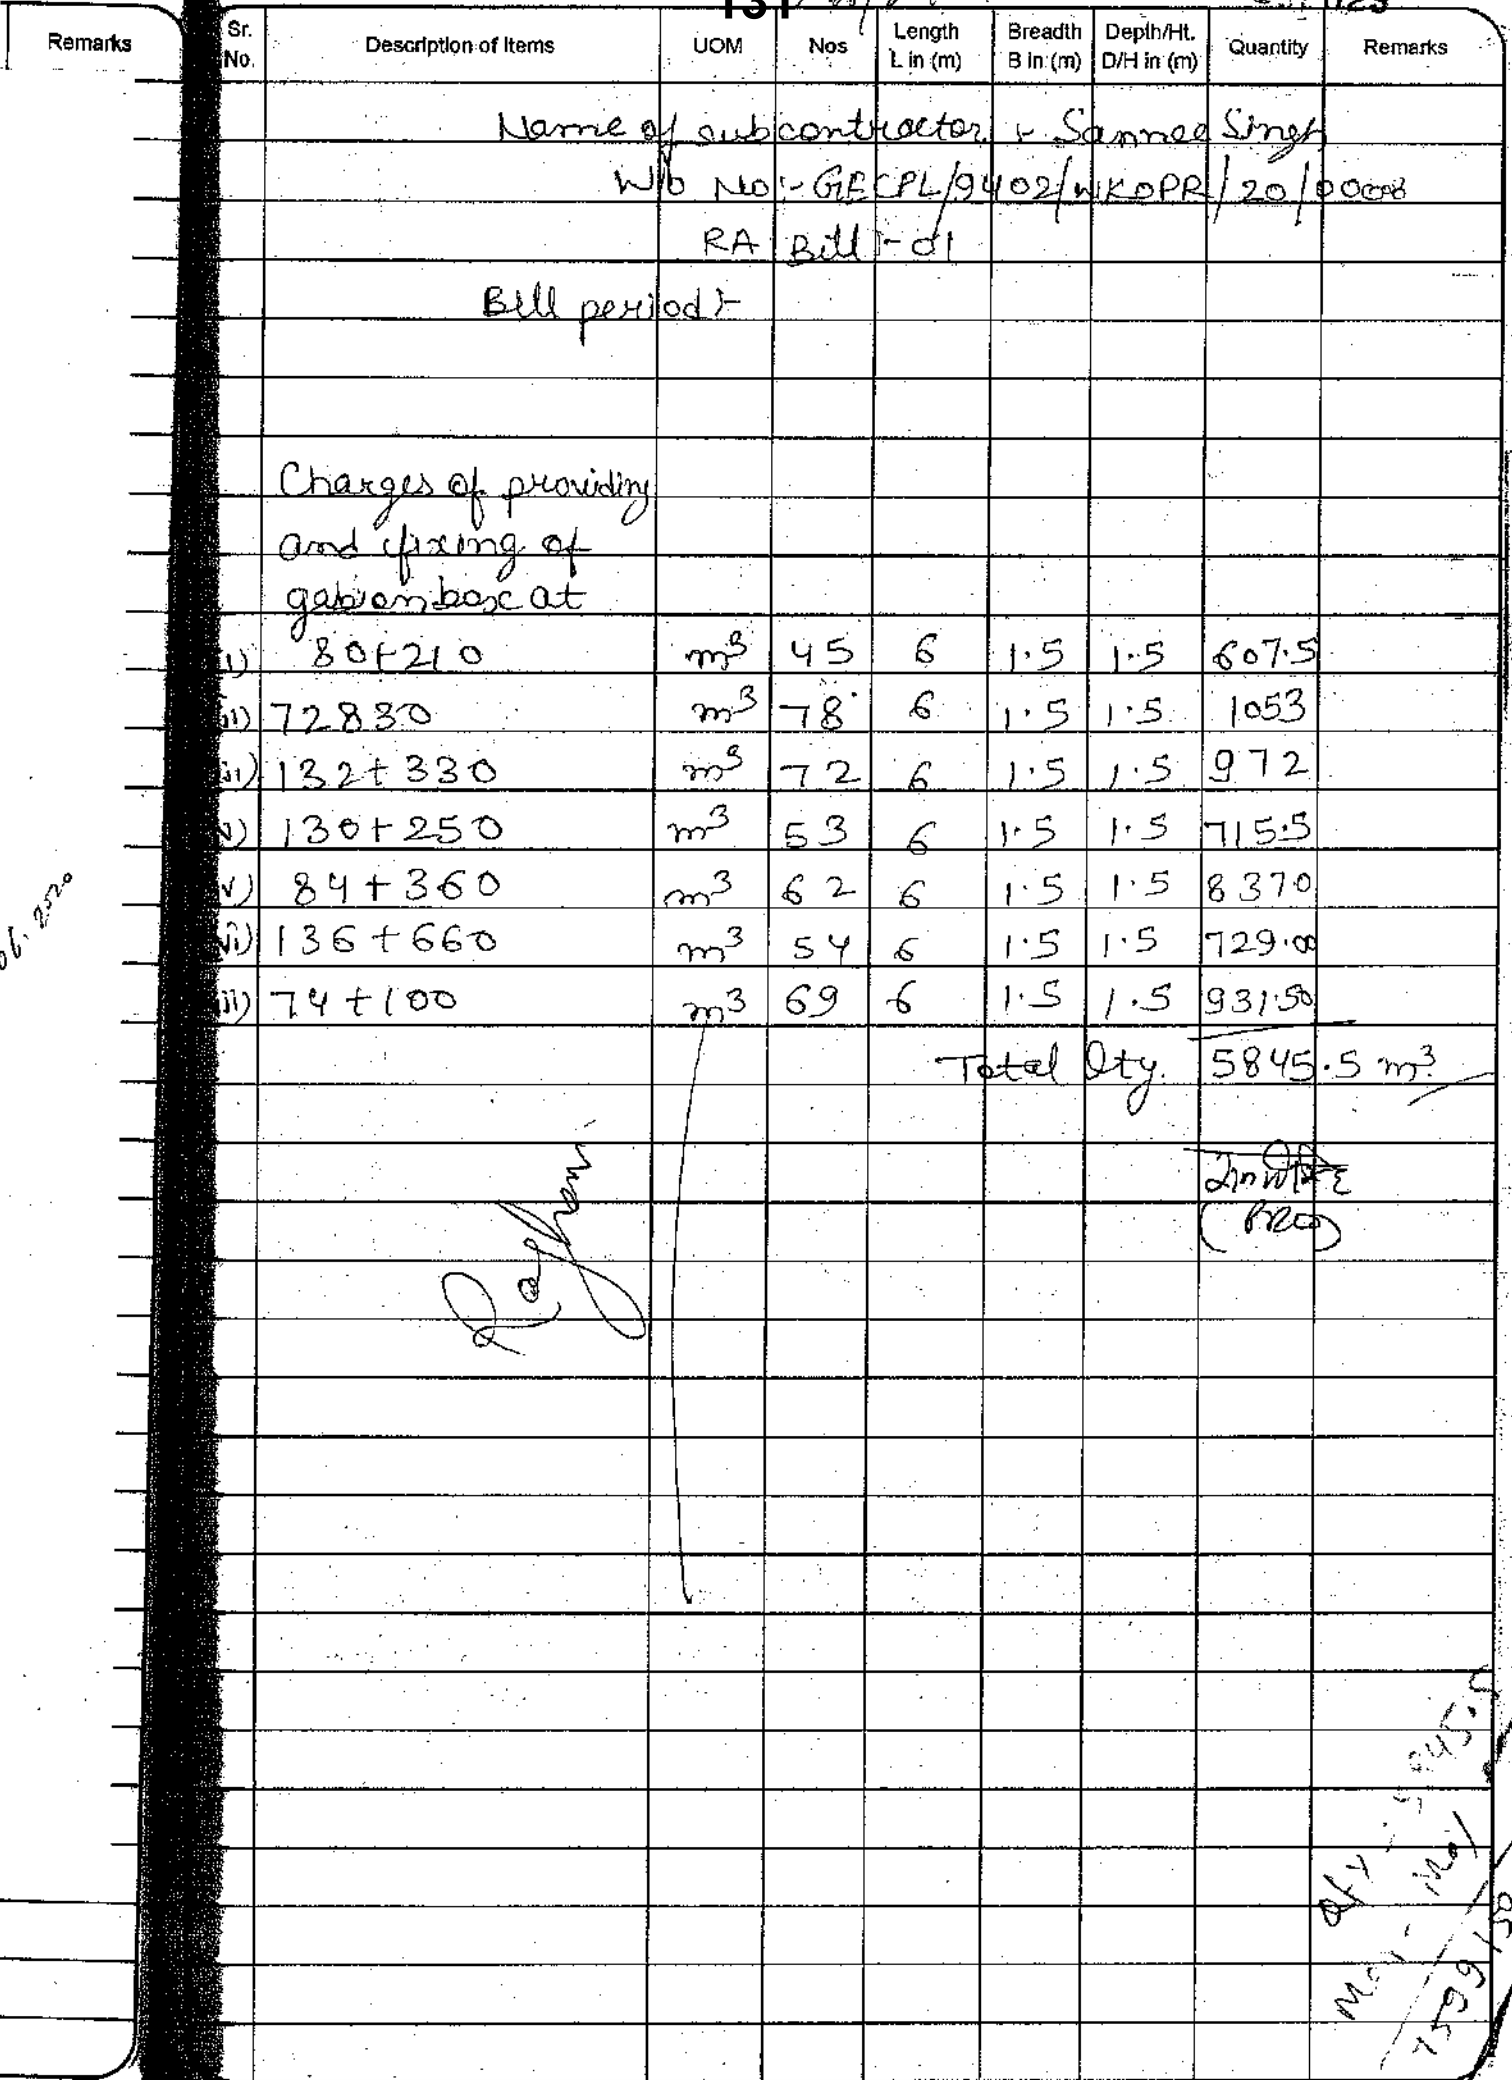 Remarks
Sr. No. Description of Items UOM Nos Length L in (m) Breadth B in (m) Depth/Ht. D/H in (m) Quantity Remarks
Name of subcontractor :- Sannee Singh
W/o No:- GECPL/9402/WKOPR/20/00008
RA Bill :- 01
Bill period :-
Charges of providing
and fixing of
gabion box at
i) 80+210 m³ 45 6 1.5 1.5 607.5
ii) 72830 m³ 78 6 1.5 1.5 1053
iii) 132+330 m³ 72 6 1.5 1.5 972
iv) 130+250 m³ 53 6 1.5 1.5 715.5
v) 84+360 m³ 62 6 1.5 1.5 8370
vi) 136+660 m³ 54 6 1.5 1.5 729.00
vii) 74+100 m³ 69 6 1.5 1.5 931.50
Total Qty. 5845.5 m³
(PRO)
Qty - 5845.5